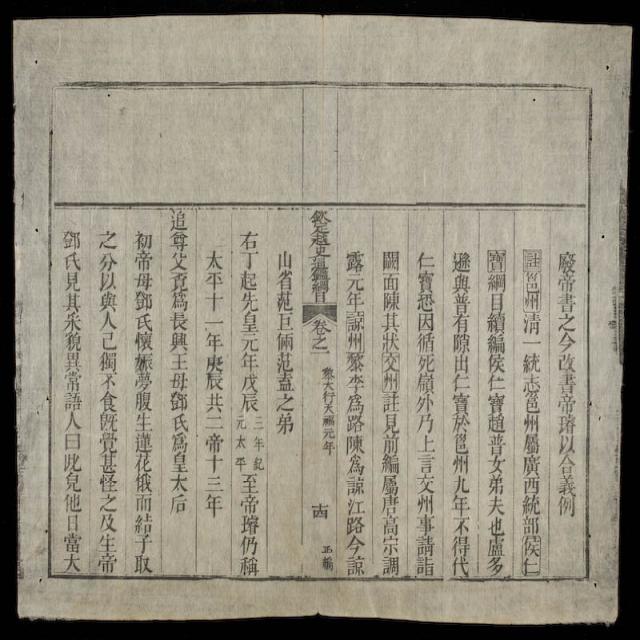 廢帝書之今改書帝璿以合義例
註邕州清一統志邕州屬廣西統部侯仁
寶綱目續編侯仁寶趙普女弟夫也盧多
遜與普有隙出仁寶於邕州九年不得代
仁寶恐因循死嶺外乃上言交州事請詣
闕面陳其狀交州註見前編屬唐高宗調
露元年諒州黎李爲路陳爲諒江路今諒
山省范巨倆范盍之弟
欽定越史通鑑綱目 卷之一 黎大行天福元年 十四 正編
右丁起先皇元年戊辰 三年紀元太平 至帝璿仍稱
太平十一年庚辰共二帝十三年
追尊父爲長興王母鄧氏爲皇太后
初帝母鄧氏懷娠夢腹生蓮花俄而結子取
之分以與人己獨不食既覺甚怪之及生帝
鄧氏見其采貌異常語人曰此兒他日當大